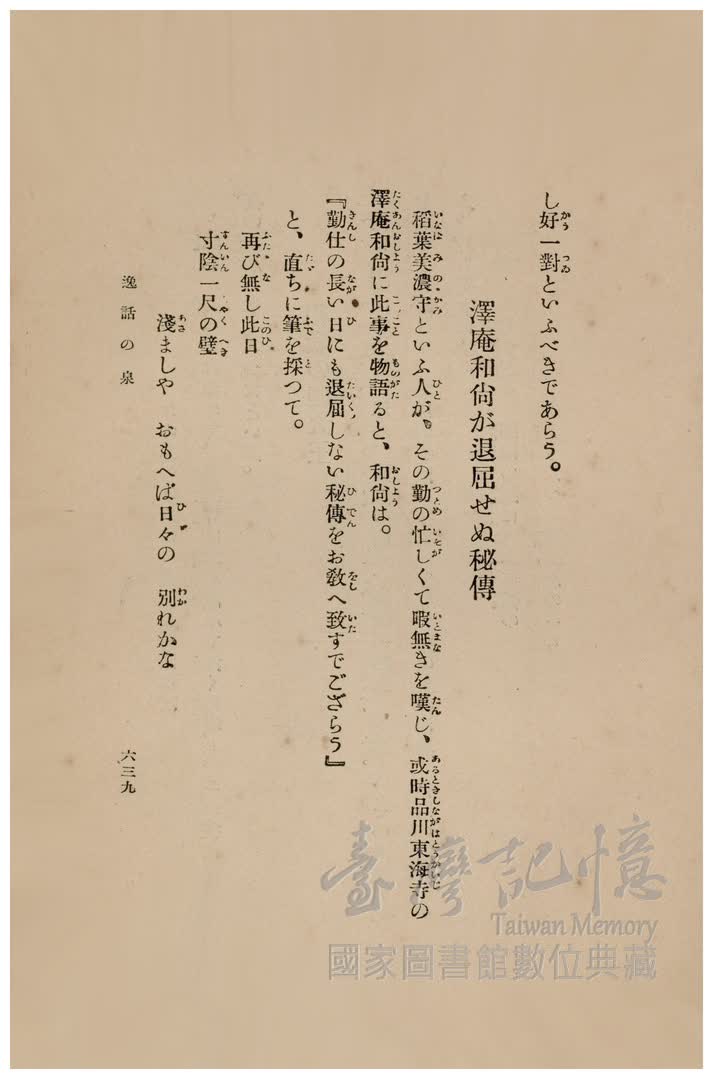 し好一對といふべきであらう。
澤庵和尙が退屈せぬ秘傳
稻葉美濃守といふ人が、その勤の忙しくて暇無きを嘆じ、或時品川東海寺の
澤庵和尙に此事を物語ると、和尙は。
『勤仕の長い日にも退屈しない秘傳をお敎へ致すでござらう』
と、直ちに筆を採つて。
再び無し此日
寸陰一尺の璧
淺ましや おもへば日々の 別れかな
逸話の泉
六三九
臺灣記憶
Taiwan Memory
國家圖書館數位典藏